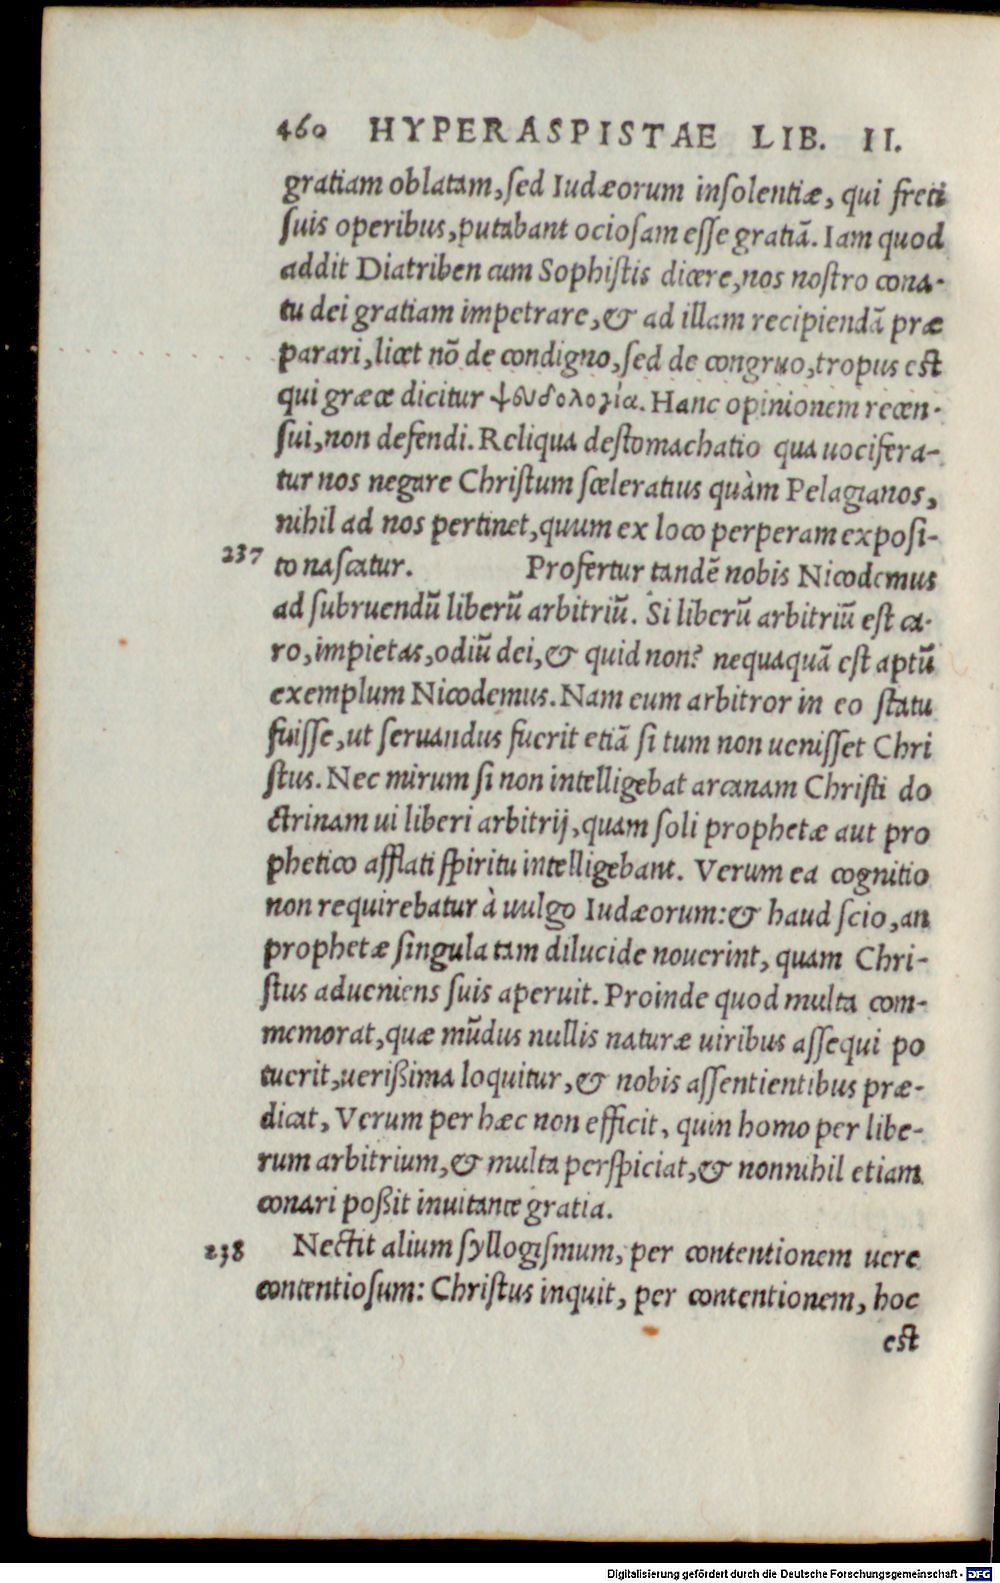 460 HYPERASPISTAE LIB. II.
gratiam oblatam, sed Iudæorum insolentiæ, qui freti
suis operibus, putabant ociosam esse gratiã. Iam quod
addit Diatriben cum Sophistis dicere, nos nostro cona-
tu dei gratiam impetrare, & ad illam recipiendã præ
parari, licet nõ de condigno, sed de congruo, tropus est
qui græce dicitur ψευδολογία. Hanc opinionem recen-
sui, non defendi. Reliqua destomachatio qua uocifera-
tur nos negare Christum sceleratius quàm Pelagianos,
nihil ad nos pertinet, quum ex loco perperam exposi-
237 to nascatur. Profertur tandẽ nobis Nicodemus
ad subruendũ liberũ arbitriũ. Si liberũ arbitriũ est ca-
ro, impietas, odiũ dei, & quid non? nequaquã est aptũ
exemplum Nicodemus. Nam eum arbitror in eo statu
fuisse, ut seruandus fuerit etiã si tum non uenisset Chri
stus. Nec mirum si non intelligebat arcanam Christi do
ctrinam ui liberi arbitrij, quam soli prophetæ aut pro
phetico afflati spiritu intelligebant. Verum ea cognitio
non requirebatur à uulgo Iudæorum: & haud scio, an
prophetæ singula tam dilucide nouerint, quam Chri-
stus adueniens suis aperuit. Proinde quod multa com-
memorat, quæ mũdus nullis naturæ uiribus assequi po
tuerit, uerißima loquitur, & nobis assentientibus præ-
dicat, Verum per hæc non efficit, quin homo per libe-
rum arbitrium, & multa perspiciat, & nonnihil etiam
conari poßit inuitante gratia.
238 Nectit alium syllogismum, per contentionem uere
contentiosum: Christus inquit, per contentionem, hoc
est
Digitalisierung gefördert durch die Deutsche Forschungsgemeinschaft - DFG